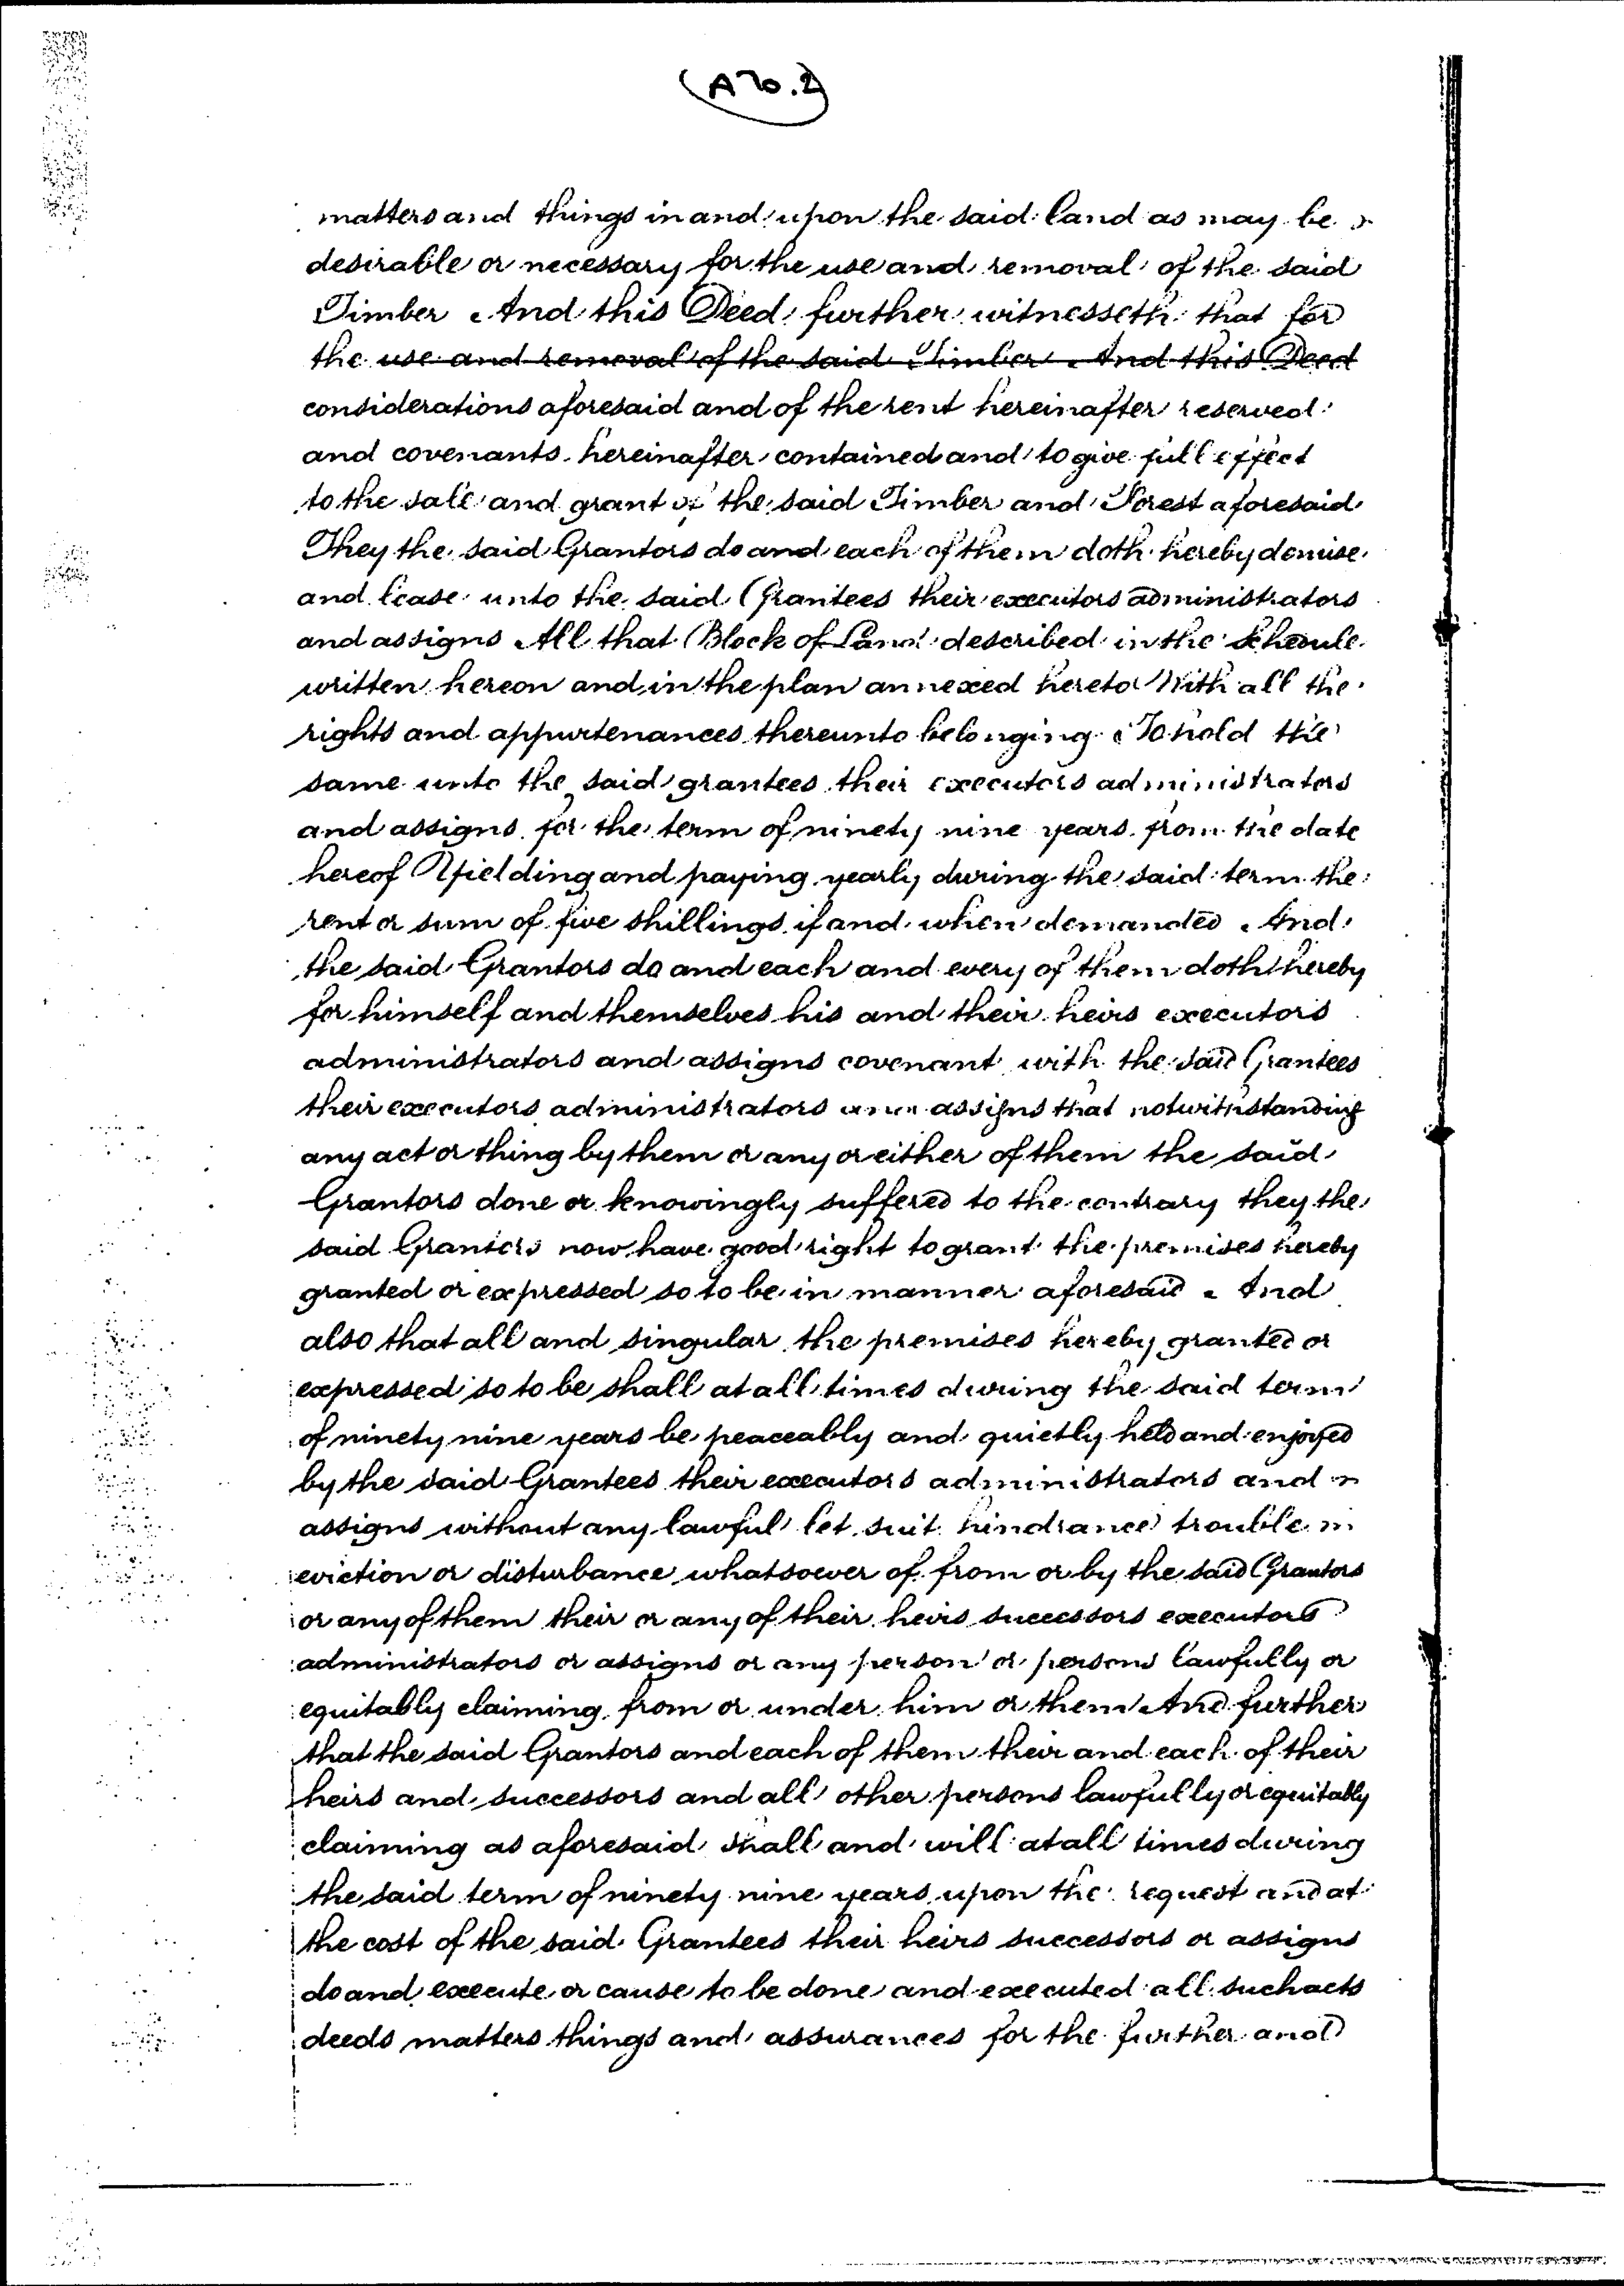 (A 20.2)
matters and things in and upon the said land as may be
desirable or necessary for the use and removal of the said
Timber And this Deed further witnesseth that for
the use and removal of the said Timber And this Deed
considerations aforesaid and of the rent hereinafter reserved
and covenants hereinafter contained and to give full effect
to the sale and grant of the said Timber and Forest aforesaid
They the said Grantors do and each of them doth hereby demise
and lease unto the said Grantees their executors administrators
and assigns All that Block of Land described in the Schedule
written hereon and in the plan annexed hereto With all the
rights and appurtenances thereunto belonging To hold the
same unto the said grantees their executors administrators
and assigns for the term of ninety nine years from the date
hereof Yielding and paying yearly during the said term the
rent or sum of five shillings if and when demanded And
the said Grantors do and each and every of them doth hereby
for himself and themselves his and their heirs executors
administrators and assigns covenant with the said Grantees
their executors administrators and assigns that notwithstanding
any act or thing by them or any or either of them the said
Grantors done or knowingly suffered to the contrary they the
said Grantors now have good right to grant the premises hereby
granted or expressed so to be in manner aforesaid And
also that all and singular the premises hereby granted or
expressed so to be shall at all times during the said term
of ninety nine years be peaceably and quietly held and enjoyed
by the said Grantees their executors administrators and
assigns without any lawful let suit hindrance trouble
eviction or disturbance whatsoever of from or by the said Grantors
or any of them their or any of their heirs successors executors
administrators or assigns or any person or persons lawfully or
equitably claiming from or under him or them And further
that the said Grantors and each of them their and each of their
heirs and successors and all other persons lawfully or equitably
claiming as aforesaid shall and will at all times during
the said term of ninety nine years upon the request and at
the cost of the said Grantees their heirs successors or assigns
do and execute or cause to be done and executed all such acts
deeds matters things and assurances for the further and